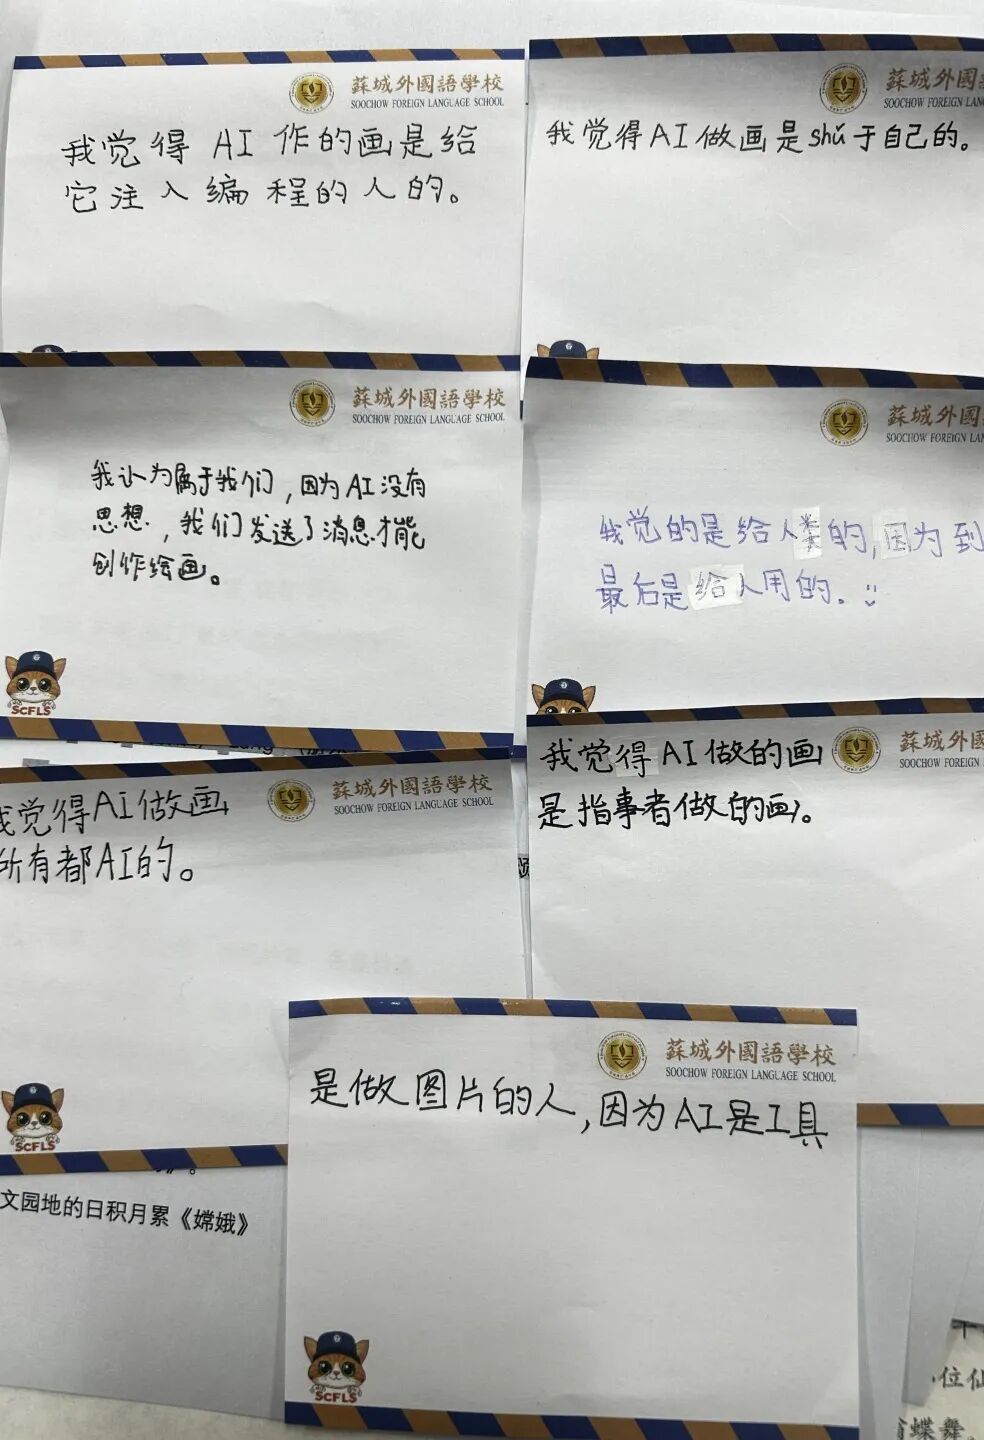 蘇城外國語學校
SOOCHOW FOREIGN LANGUAGE SCHOOL
我觉得 AI 作的画是给
它注入编程的人的。
蘇城外國語學
SOOCHOW FOREIGN LANGUAGE
我觉得AI做画是shǔ于自己的。
蘇城外國語學校
SOOCHOW FOREIGN LANGUAGE SCHOOL
我认为属于我们,因为AI没有
思想,我们发送了消息才能
创作绘画。
SCFLS
蘇城外國語
SOOCHOW FOREIGN LAN
我觉的是给人类的,因为到
最后是给人用的.
蘇城外國語學校
SOOCHOW FOREIGN LANGUAGE SCHOOL
我觉得AI做画
所有都AI的。
SCFLS
蘇城外國
SOOCHOW FOREIGN
我觉得AI做的画
是指事者做的画。
蘇城外國語學校
SOOCHOW FOREIGN LANGUAGE SCHOOL
是做图片的人,因为AI是工具
SCFLS
文园地的日积月累《嫦娥》
位仙
蝶舞